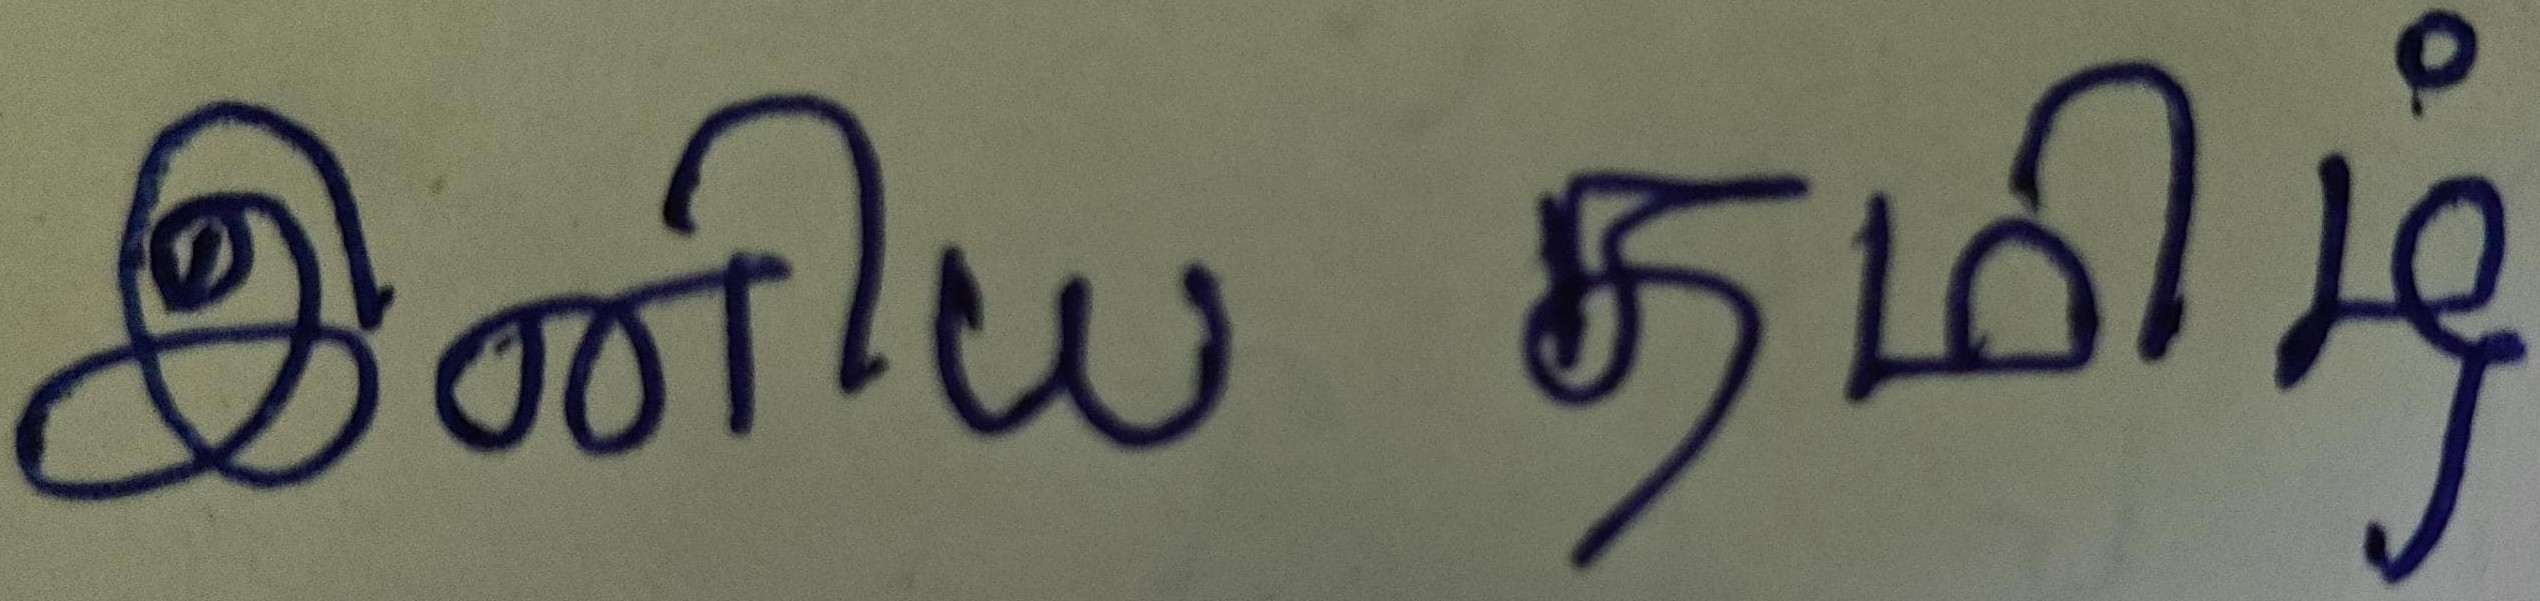 இனிய தமிழ்